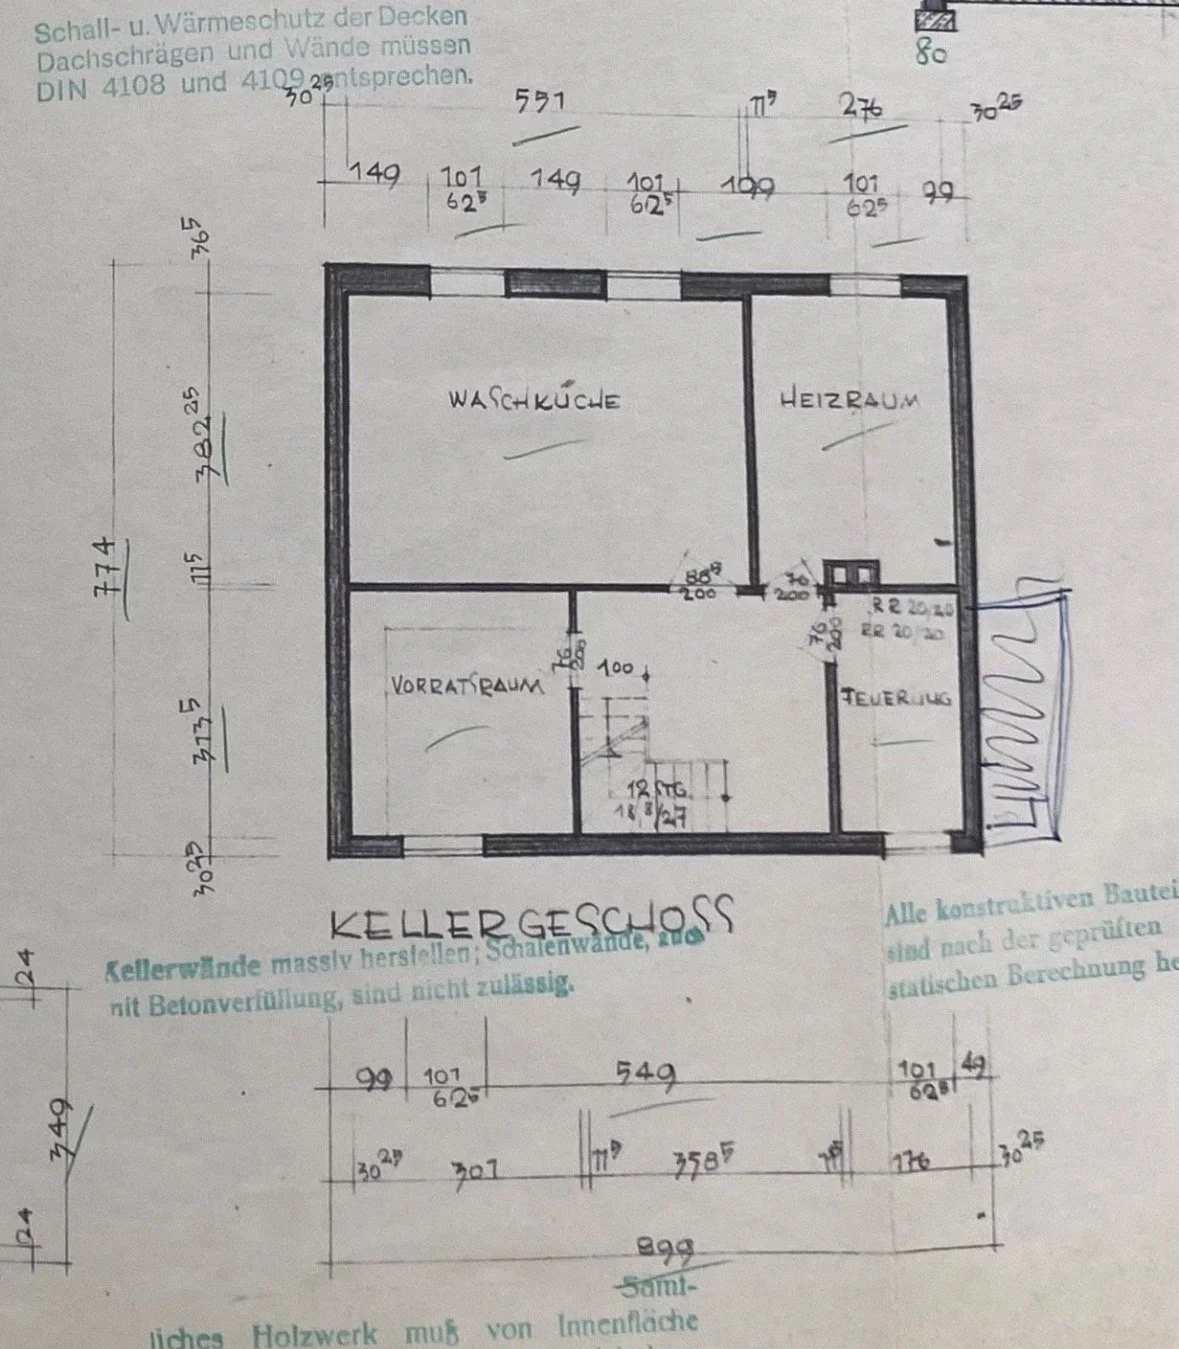 Schall- u. Wärmeschutz der Decken
Dachschrägen und Wände müssen
DIN 4108 und 4109 entsprechen.
80
30²⁵ 551 11⁵ 276 30²⁵
149 101 149 101 199 101 99
62⁵ 62⁵ 62⁵
36⁵
382²⁵
774
11⁵
313⁵
30²⁵
WASCHKÜCHE
HEIZRAUM
88⁵
200
76
200
RR 20/20
RR 20/20
76
200
76
200
100
VORRATSRAUM
FEUERUNG
12 STG.
18,8/27
KELLERGESCHOSS
Kellerwände massiv herstellen; Schalenwände, auch
mit Betonverfüllung, sind nicht zulässig.
Alle konstruktiven Bautei
sind nach der geprüften
statischen Berechnung he
24
349
24
99 101 549 101 49
62⁵ 62⁵
30²⁵ 301 11⁵ 358⁵ 11⁵ 176 30²⁵
899
Sämt-
liches Holzwerk muß von Innenfläche